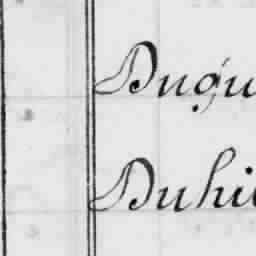 Dugu
Duhi